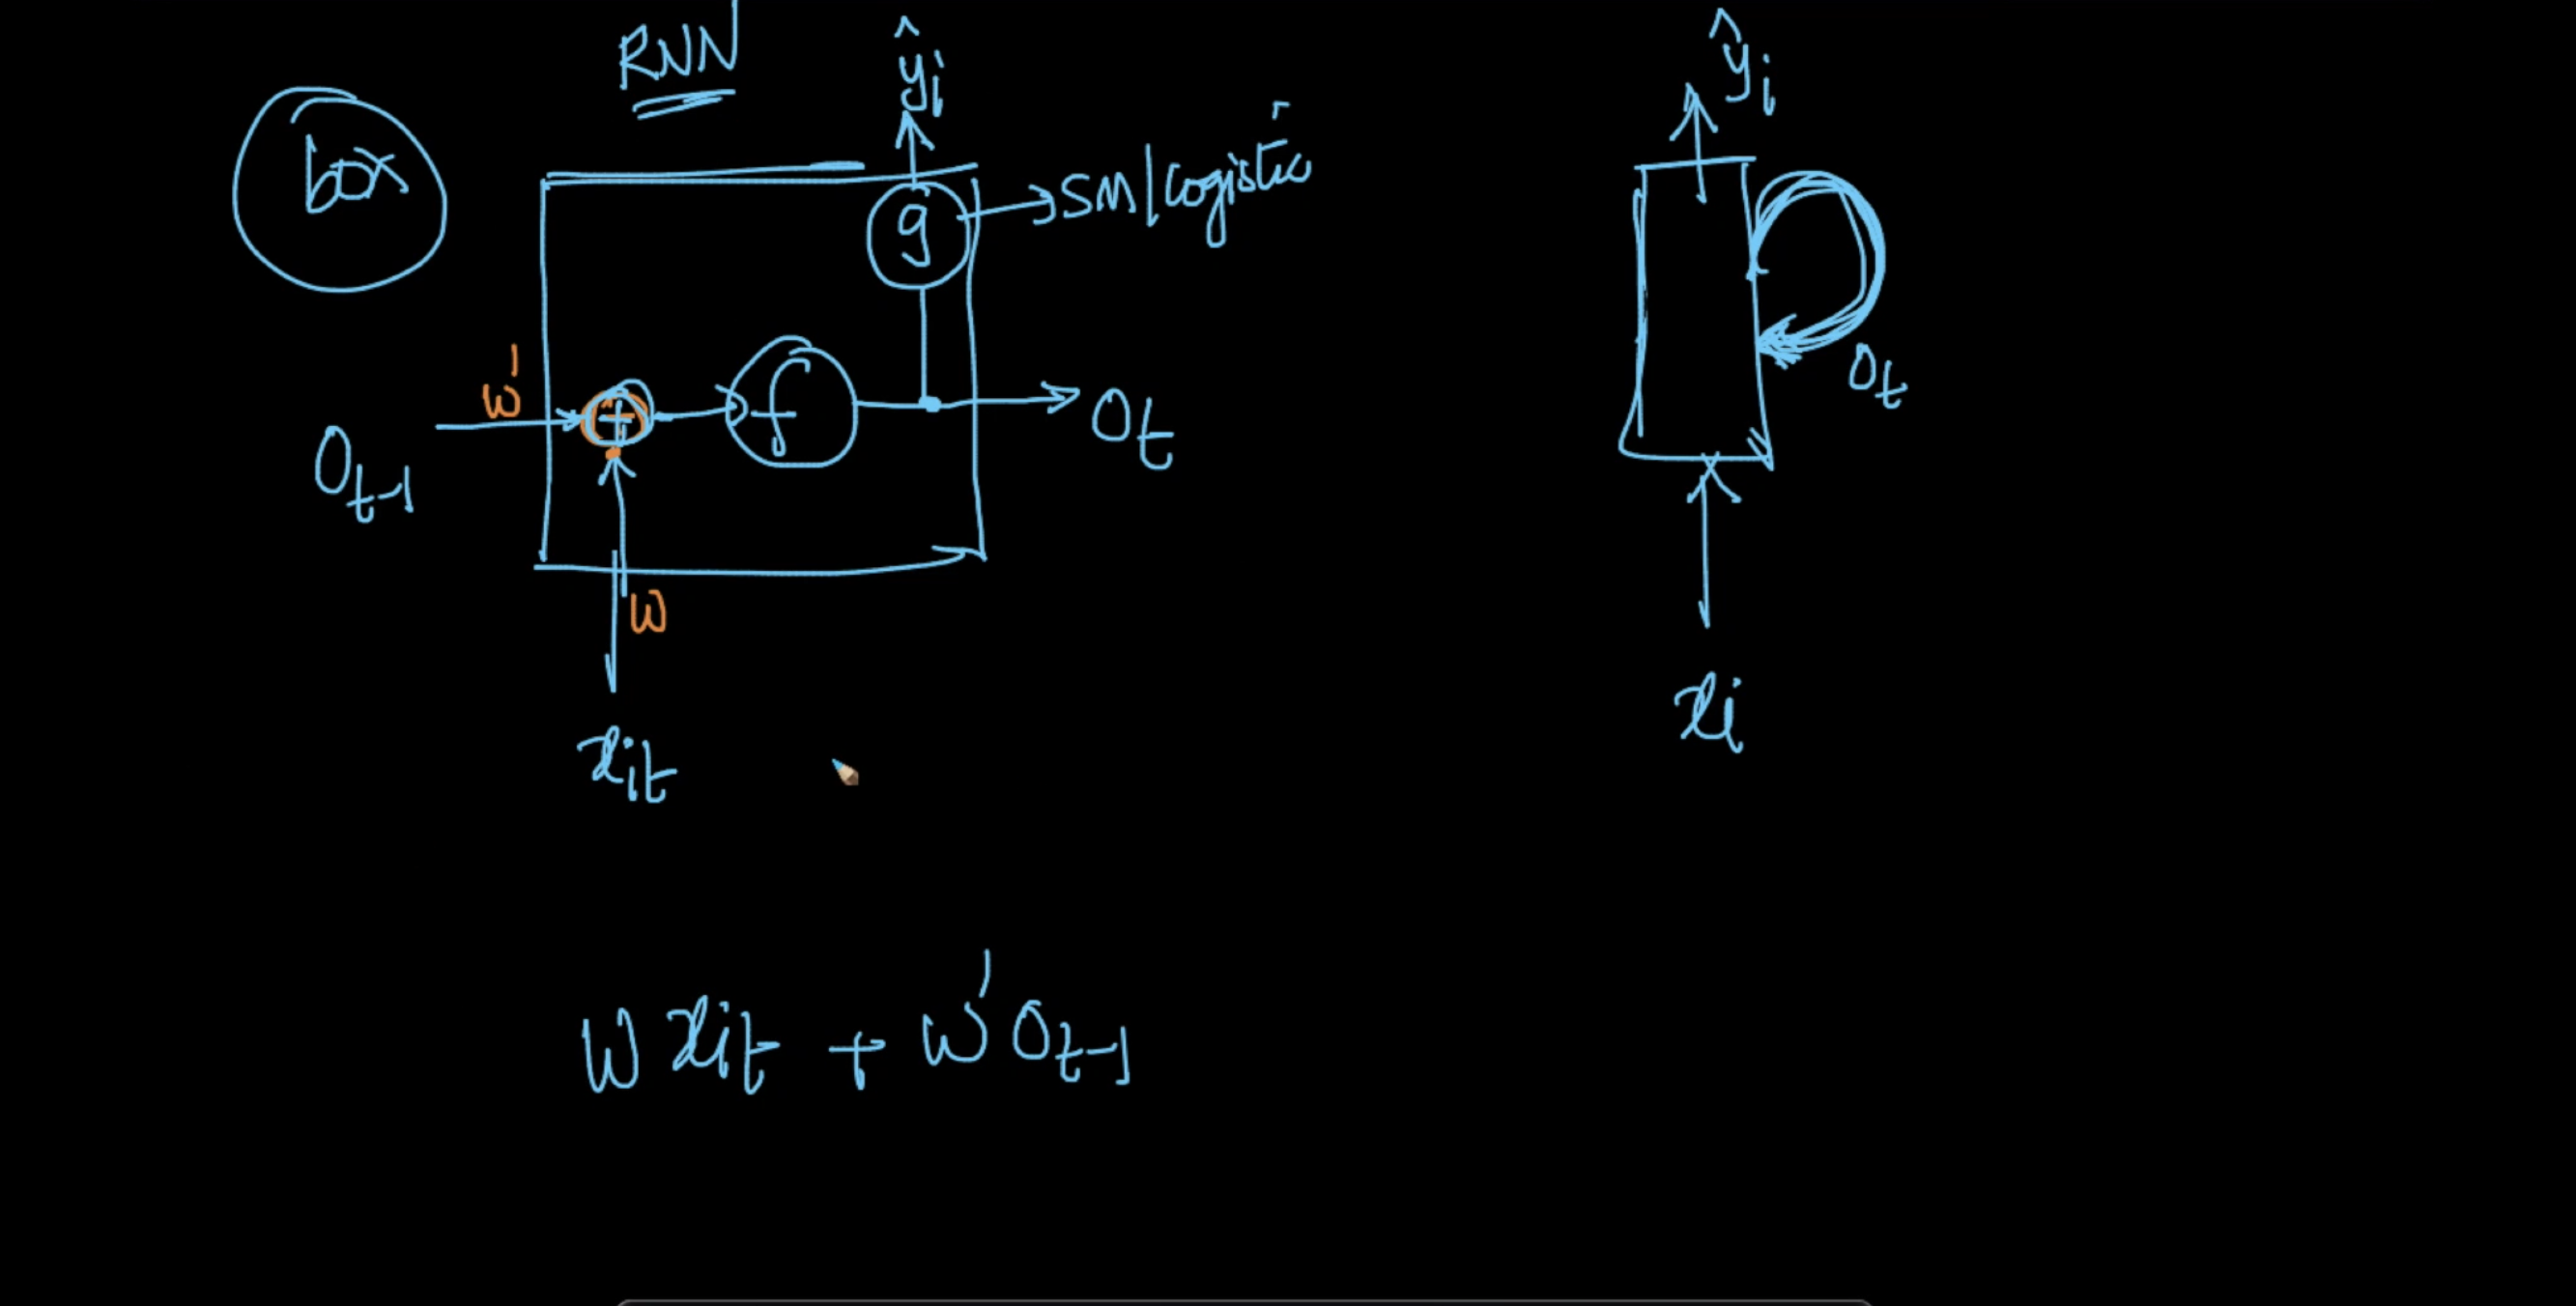 RNN
box
ŷi
SM/Logistic
g
w'
+
f
Ot-1
Ot
w
xit
ŷi
Ot
xi
W xit + w' Ot-1